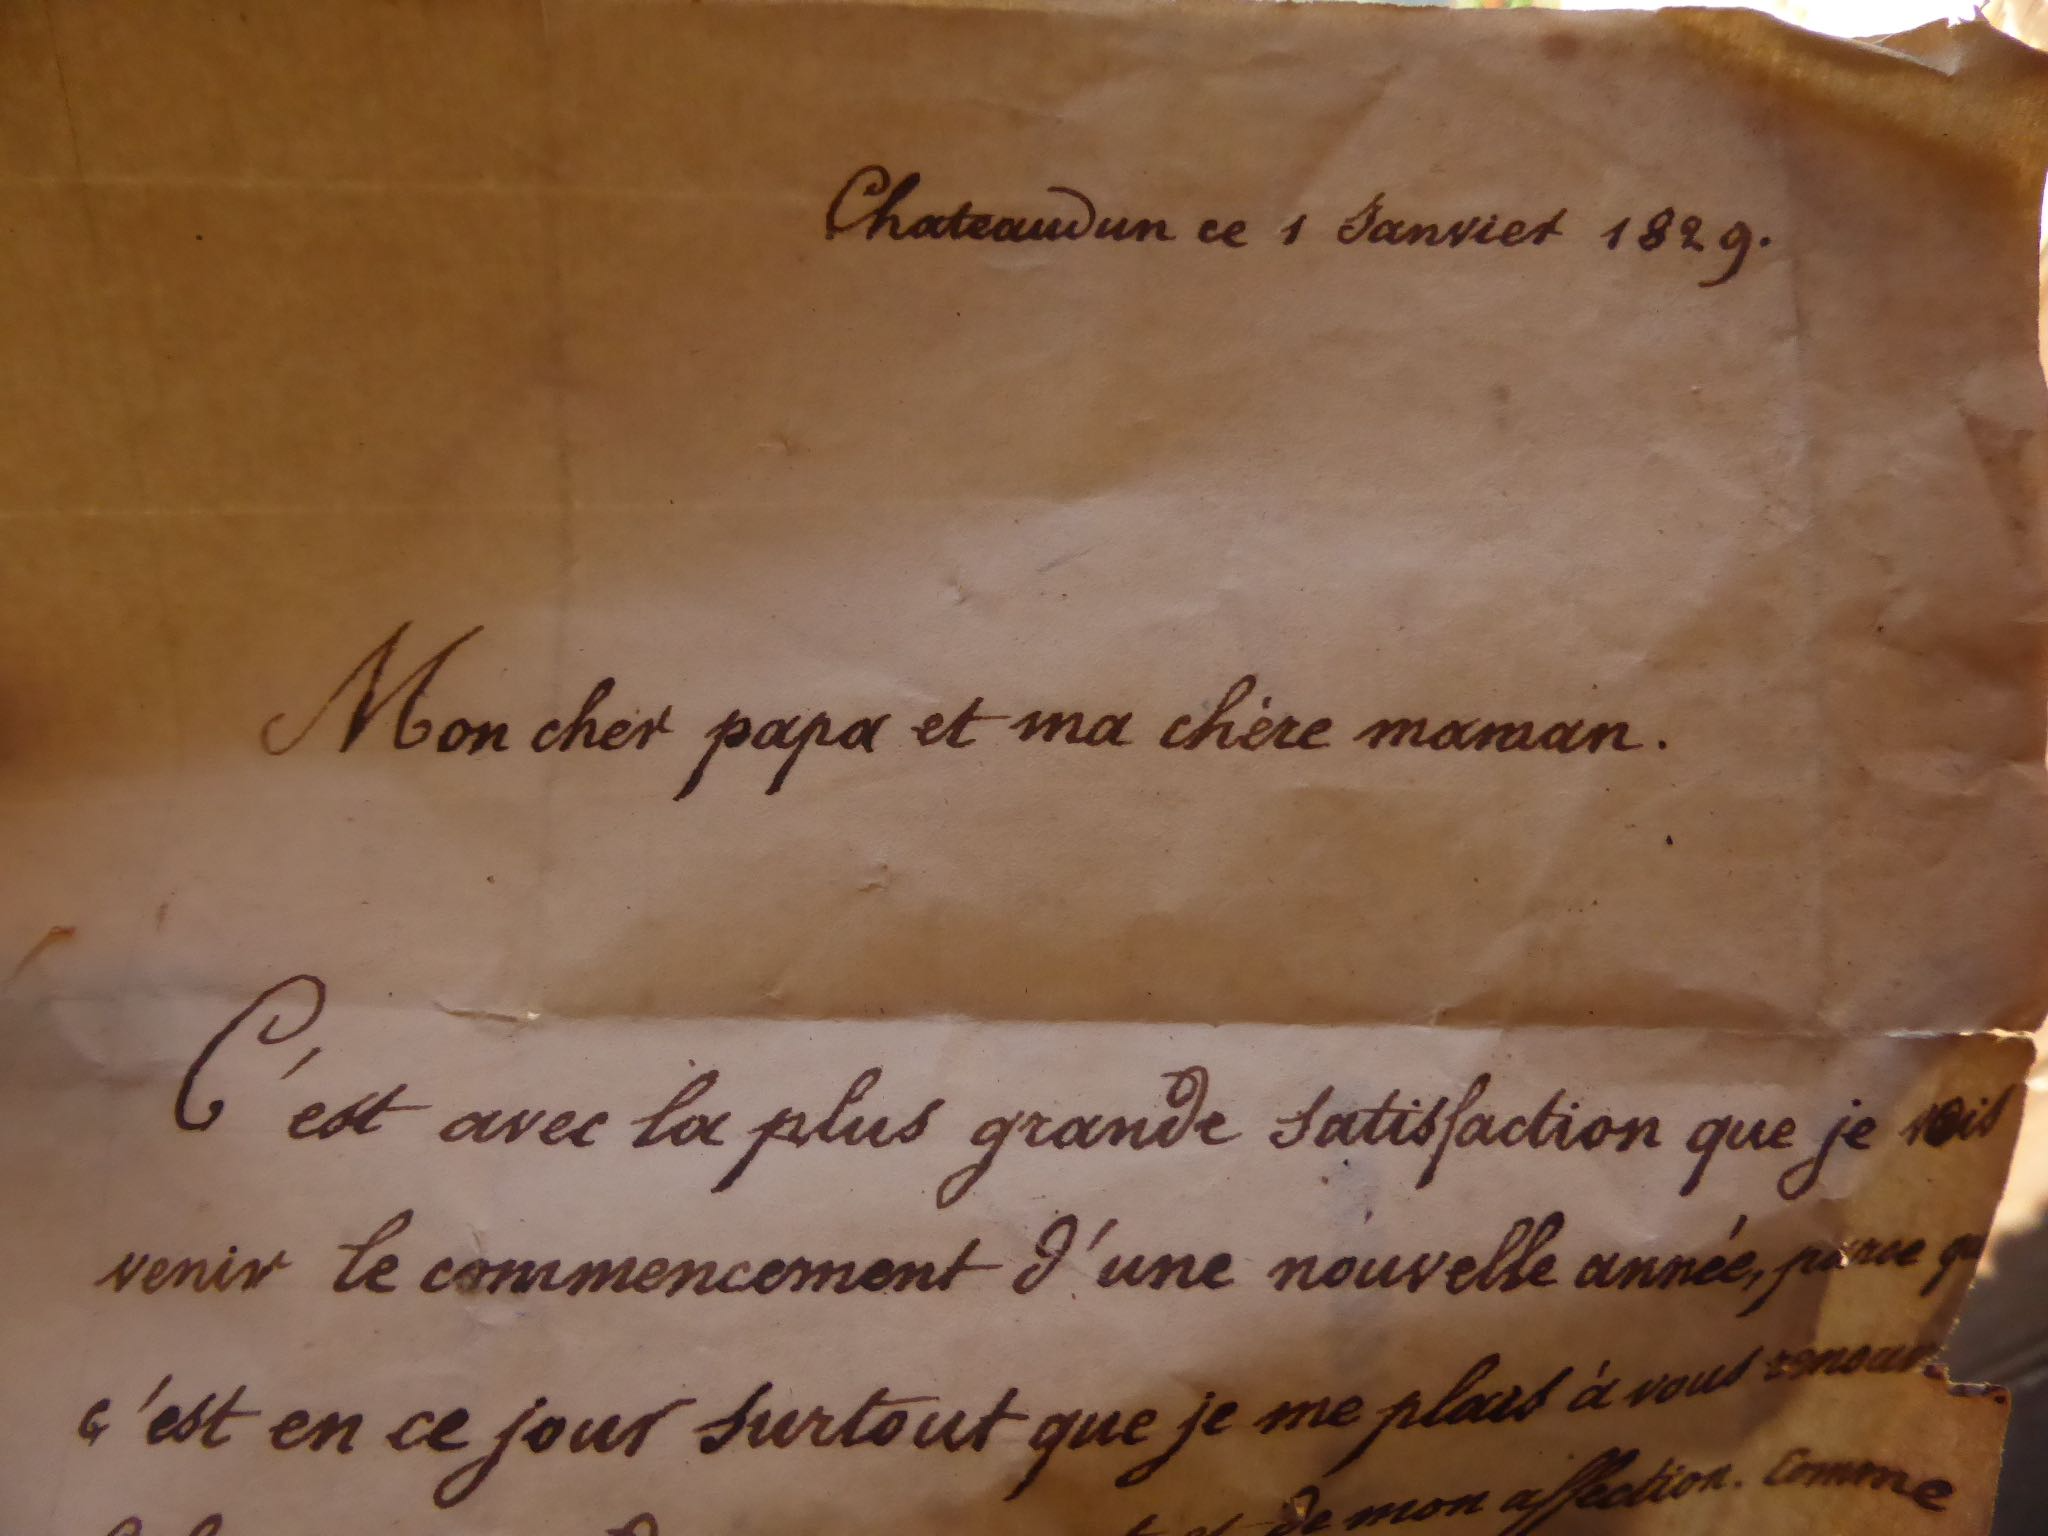 Chateaudun ce 1 Janvier 1829.
Mon cher papa et ma chère maman.
C'est avec la plus grande satisfaction que je vois
venir le commencement d'une nouvelle année, parce qu
c'est en ce jour surtout que je me plais à vous
de mon affection. Comme